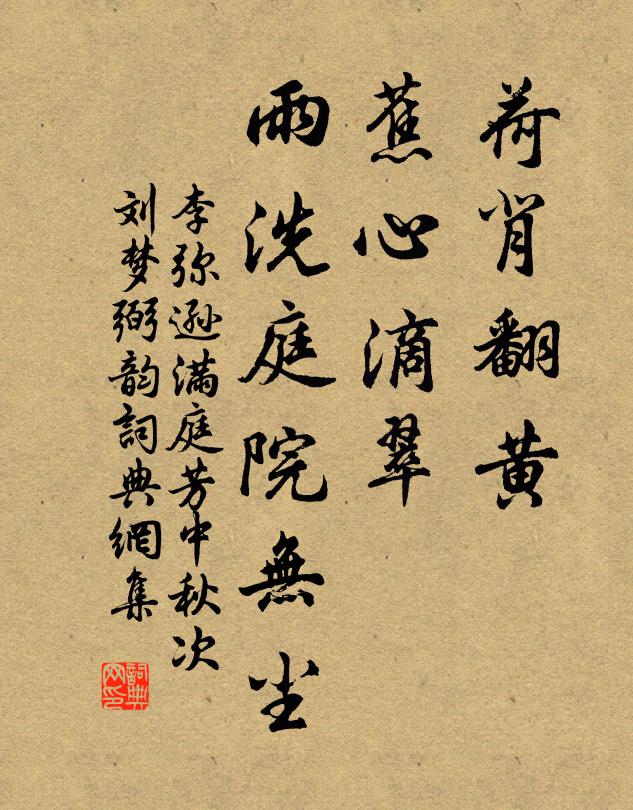 荷背翻黄
蕉心滴翠
雨洗庭院無尘
李弥逊满庭芳中秋次
刘梦弼韵詞典網集
詞典
网印